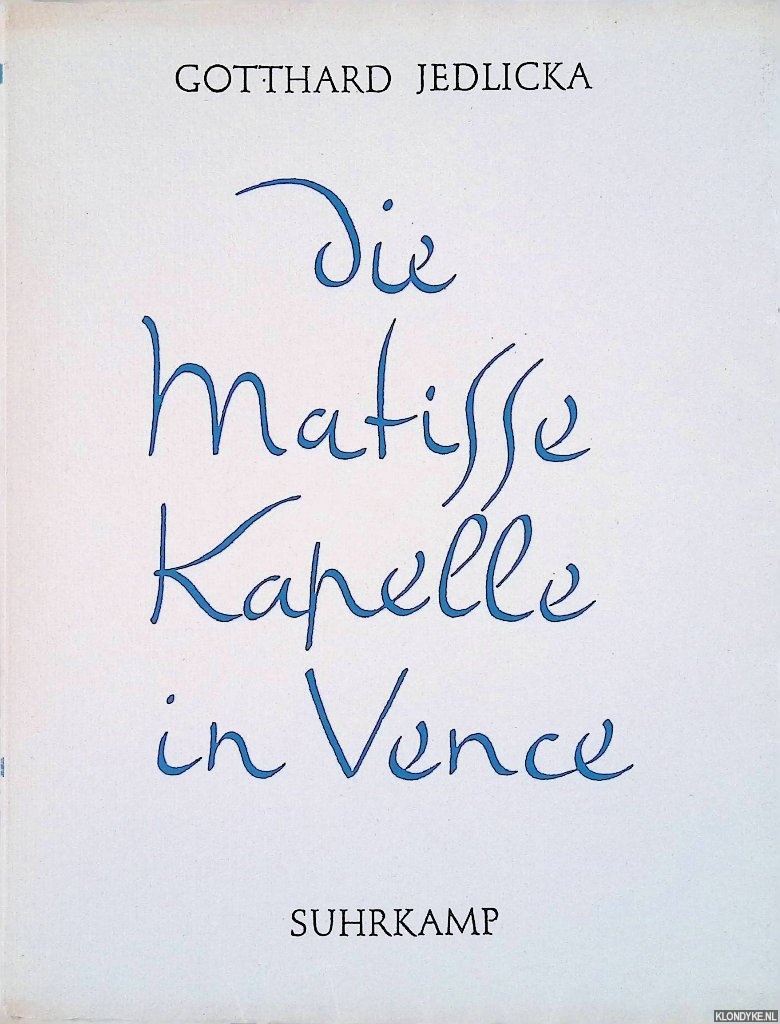 GOTTHARD JEDLICKA
Die
Matisse
Kapelle
in Vence
SUHRKAMP
KLONDYKE.NL